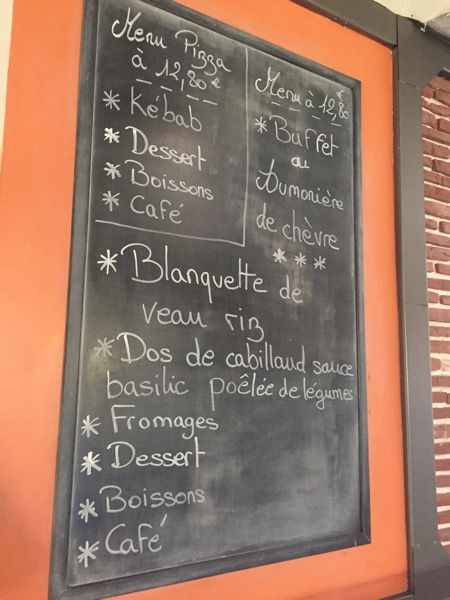 Menu Pizza
à 12,80 €
* Kébab
* Dessert
* Boissons
* Café
Menu à 12,80 €
* Buffet
ou
Aumonière
de chèvre
* * *
* Blanquette de
veau riz
* Dos de cabillaud sauce
basilic poêlée de légumes
* Fromages
* Dessert
* Boissons
* Café